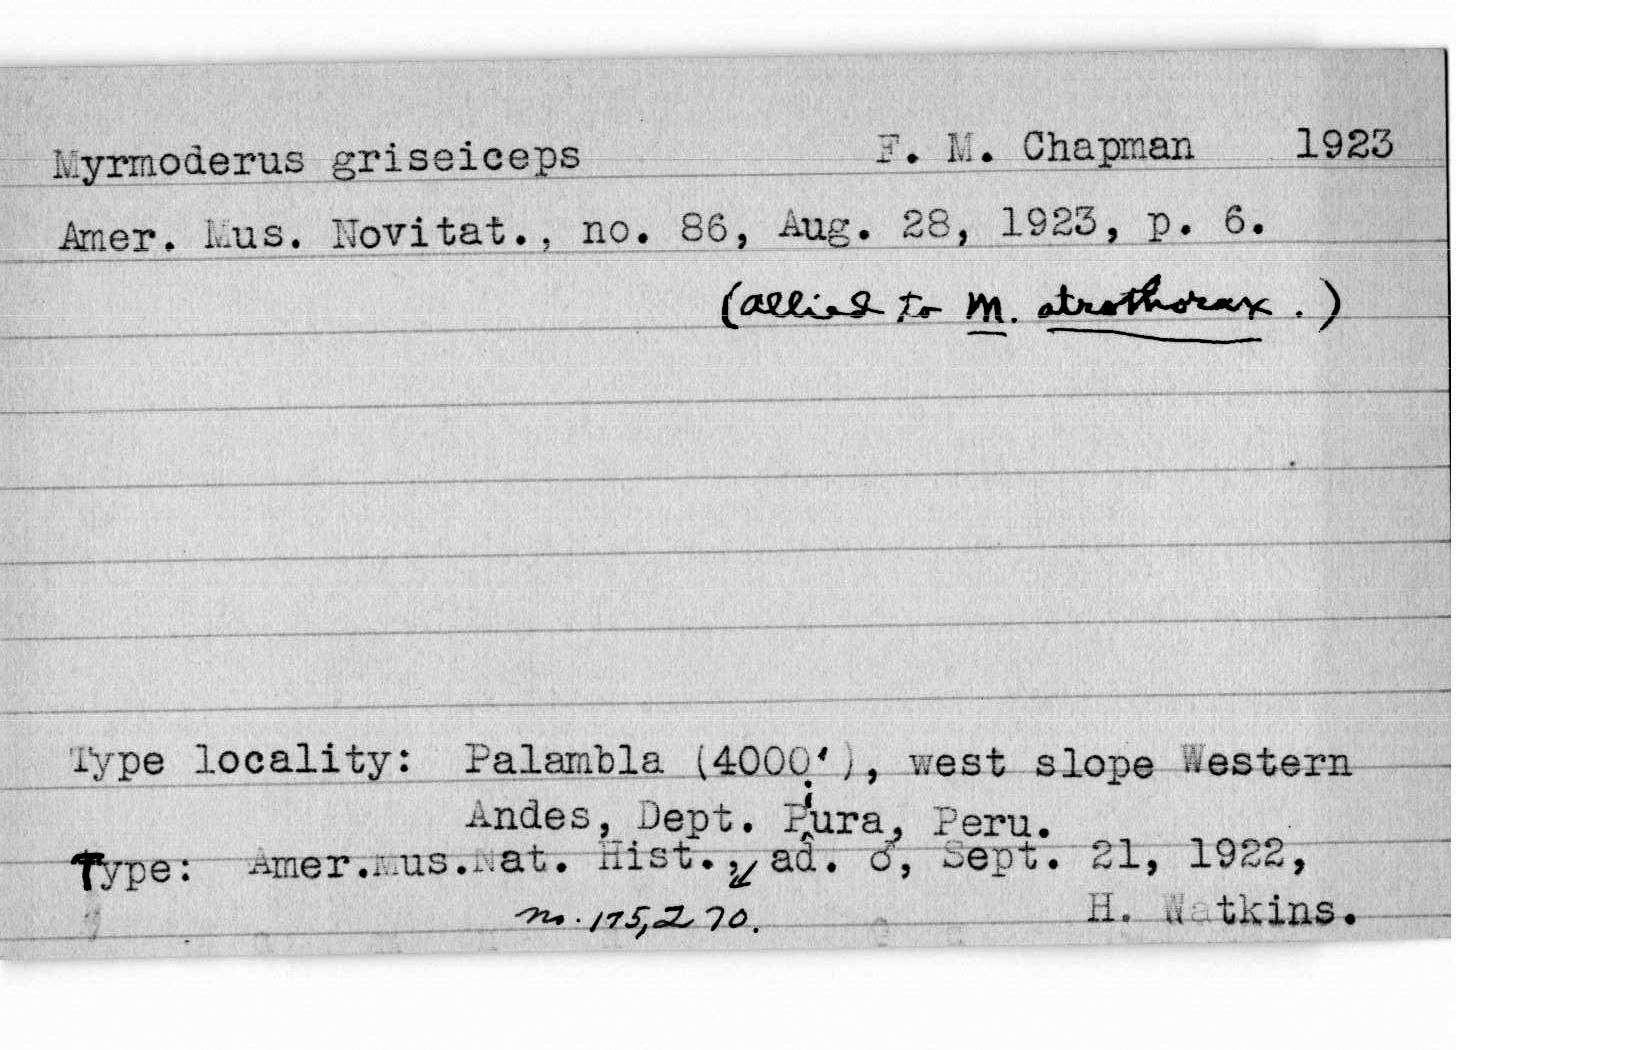 Myrmoderus griseiceps F. M. Chapman 1923
Amer. Mus. Novitat., no. 86, Aug. 28, 1923, p. 6.
(allied to M. atrothorax.)
Type locality: Palambla (4000'), west slope Western
Andes, Dept. Piura, Peru.
Type: Amer.Mus.Nat. Hist., ad. ♂, Sept. 21, 1922,
no. 175,270. H. Watkins.